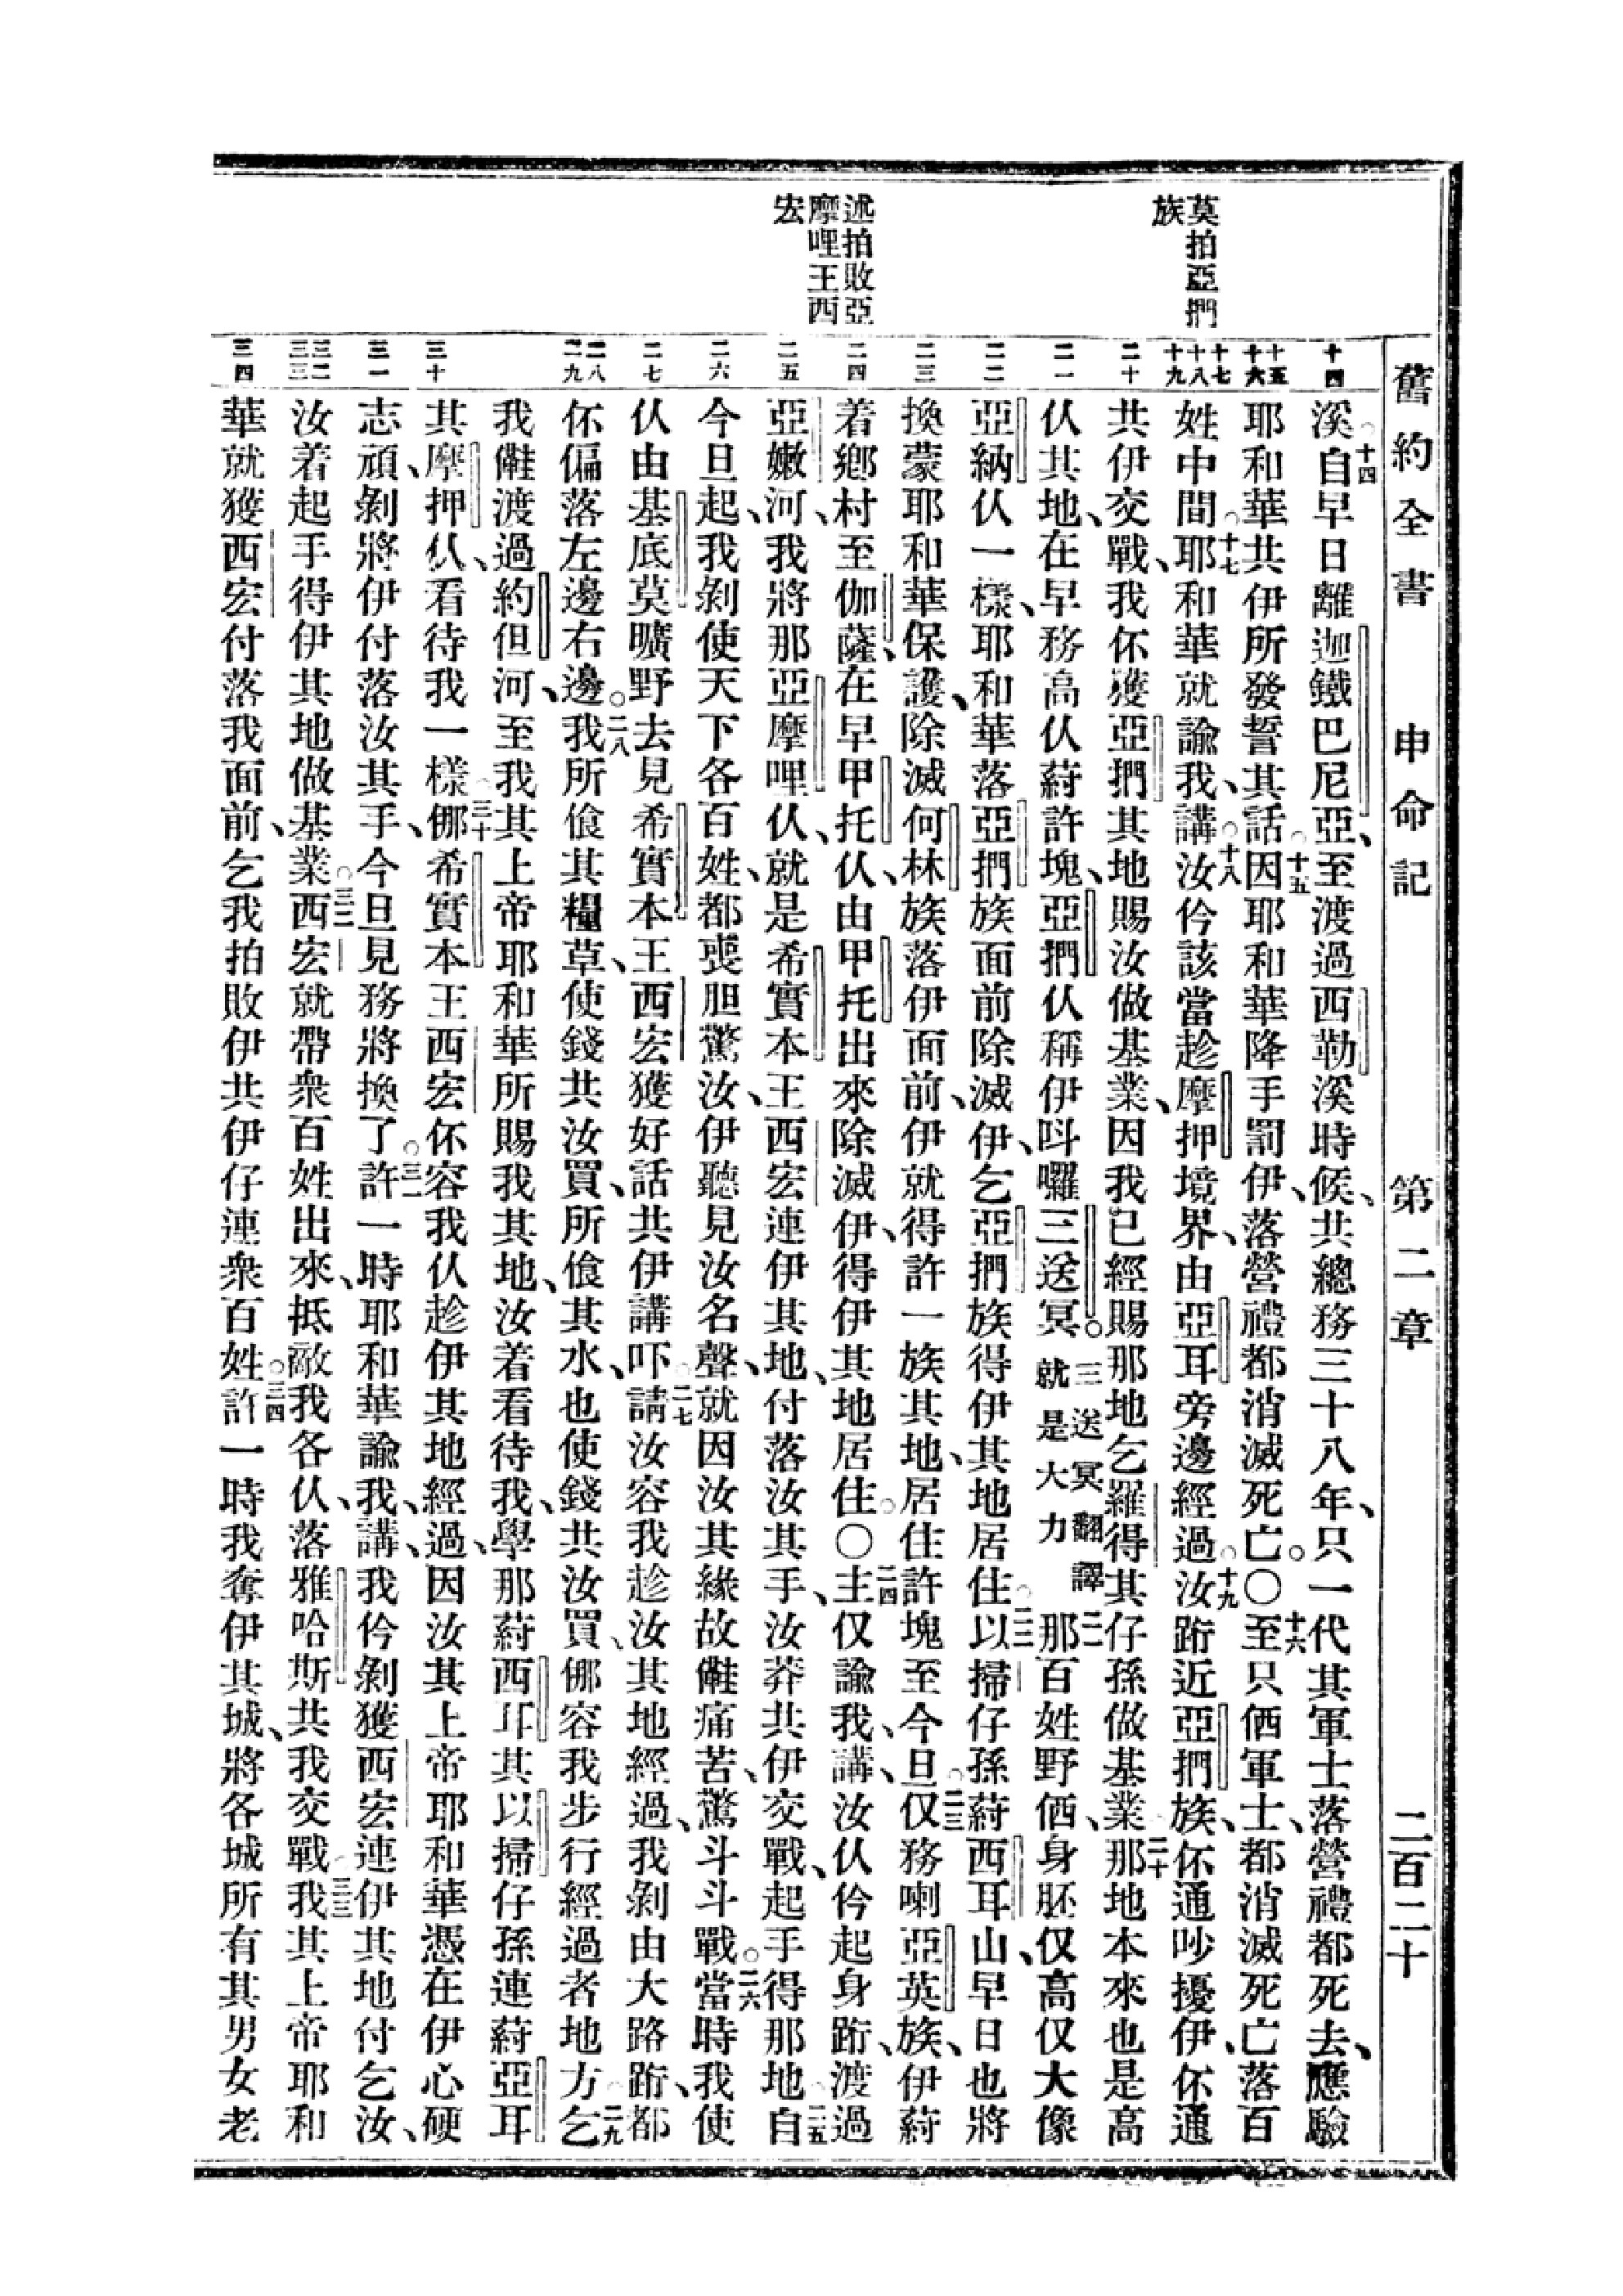 舊約全書　申命記　第二章　二百二十
莫拍亞捫
族
述拍敗亞
摩哩王西
宏
十四
十五
十六
十七
十八
十九
二十
二一
二二
二三
二四
二五
二六
二七
二八
二九
三十
三一
三二
三三
三四
溪○十四自早日離迦鐵巴尼亞、至渡過西勒溪時候、共總務三十八年、只一代其軍士落營禮都死去、應驗
耶和華共伊所發誓其話○十五因耶和華降手罰伊、落營禮都消滅死亡。○十六至只伵軍士、都消滅死亡落百
姓中間○十七耶和華就諭我、講○十八汝伶該當趁摩押境界、由亞耳旁邊經過○十九汝跲近亞捫族、伓通吵擾伊、伓通
共伊交戰、我伓獲亞捫其地賜汝做基業、因我已經賜那地乞羅得其仔孫做基業○二十那地本來也是高
仈其地、在早務高仈蒔許塊、亞捫仈稱伊呌囉三送冥。三送冥翻譯就是大力二一那百姓野伵、身胚仅高仅大像
亞納仈一樣、耶和華落亞捫族面前除滅伊、乞亞捫族得伊其地居住○二二以掃仔孫蒔西耳山、早日也將
換蒙耶和華保護、除滅何林族落伊面前、伊就得許一族其地、居住許塊至今旦○二三仅務喇亞英族、伊蒔
着鄉村至伽薩、在早甲托仈、由甲托出來除滅伊、得伊其地居住。○二四主仅諭我、講、汝仈伶起身跲、渡過
亞嫩河、我將那亞摩哩仈、就是希實本王西宏連伊其地、付落汝其手、汝莽共伊交戰、起手得那地○二五自
今旦起、我剝使天下各百姓、都喪胆驚汝、伊聽見汝名聲、就因汝其緣故儺痛苦、驚斗斗戰。二六當時我使
仈由基底莫曠野去見希實本王西宏獲好話共伊講吓○二七請汝容我趁汝其地經過、我剝由大路跲、都
伓偏落左邊右邊。二八我所飡其糧草、使錢共汝買、所飡其水、也使錢共汝買、㑚容我步行經過者地方○二九乞
我儺渡過約但河、至我其上帝耶和華所賜我其地、汝着看待我、學那蒔西耳其以掃仔孫連蒔亞耳
其摩押仈、看待我一樣○三十㑚希實本王西宏伓容我仈趁伊其地經過、因汝其上帝耶和華憑在伊心硬
志頑、剝將伊付落汝其手、今旦見務將換了。三一許一時耶和華諭我、講、我伶剝獲西宏連伊其地付乞汝、
汝着起手得伊其地做基業○三二西宏就帶衆百姓出來、抵敵我各仈、落雅哈斯共我交戰○三三我其上帝耶和
華就獲西宏付落我面前、乞我拍敗伊共伊仔連衆百姓○三四許一時我奪伊其城、將各城所有其男女老